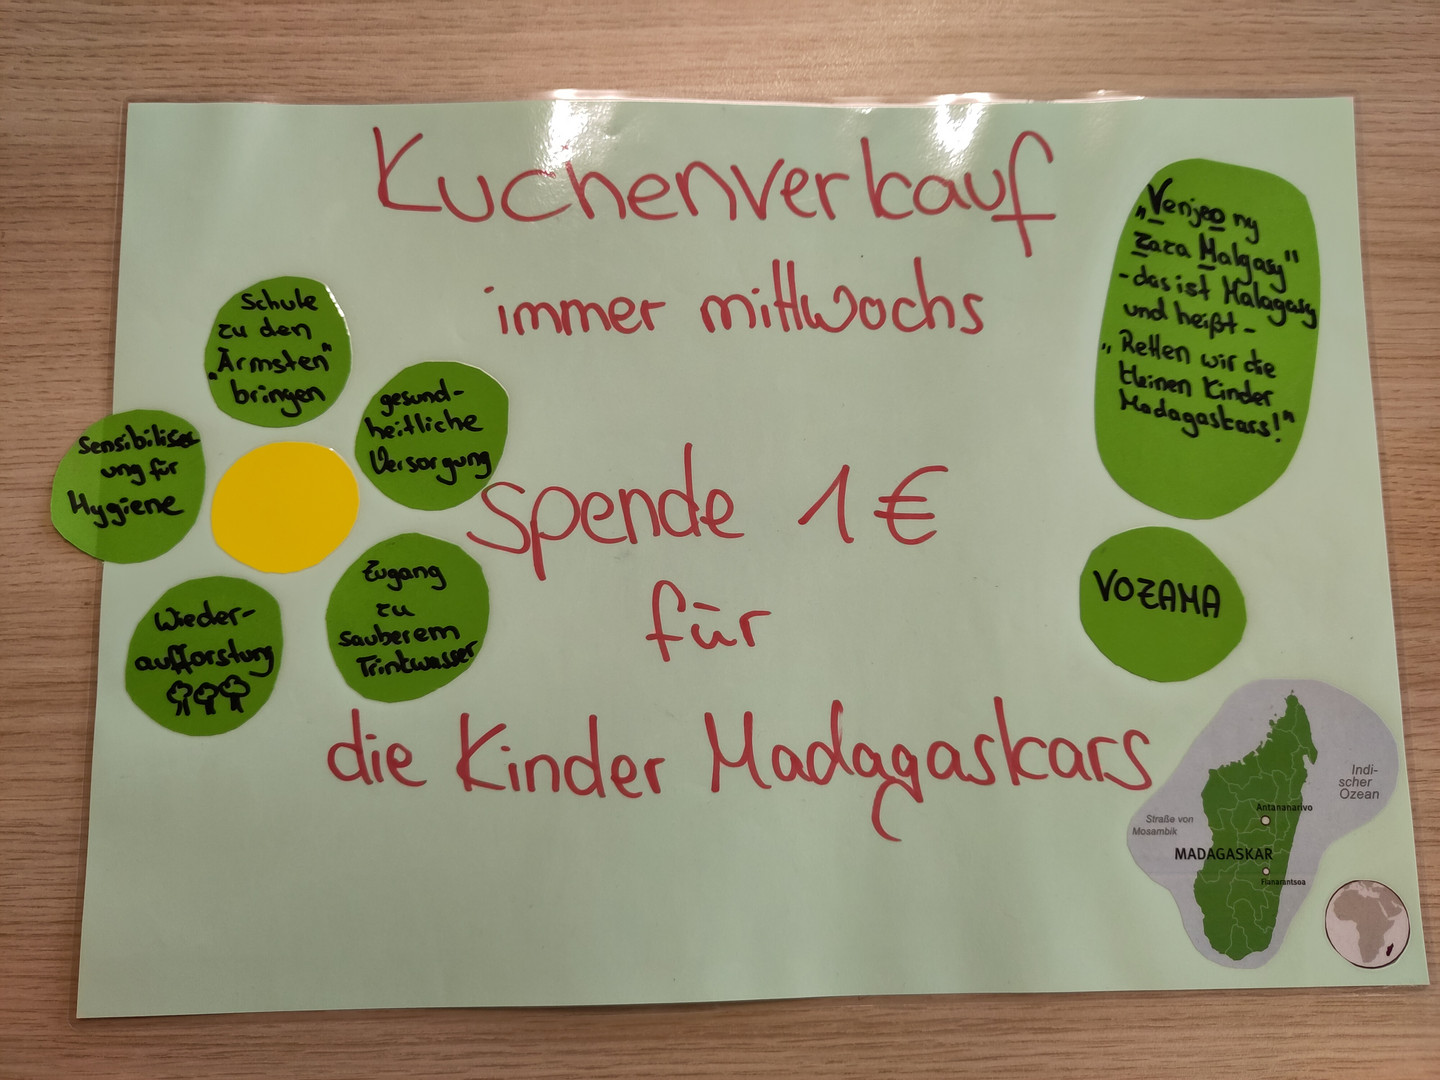 Kuchenverkauf
immer mittwochs
Spende 1 €
für
die Kinder Madagaskars
Schule
zu den
"Ärmsten"
bringen
gesund-
heitliche
Versorgung
Sensibilisier
ung für
Hygiene
Zugang
zu
sauberem
Trinkwasser
Wieder-
aufforstung
„Venjeo ny
zaza Malgasy"
- das ist Malagasy
und heißt -
„Retten wir die
kleinen Kinder
Madagaskars!"
VOZAMA
Indi-
scher
Ozean
Antananarivo
Straße von
Mosambik
MADAGASKAR
Fianarantsoa